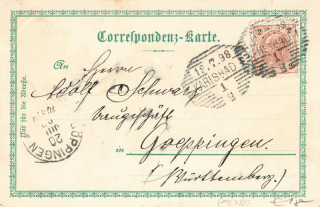 Correspondenz-Karte.
An Herrn
Adolf Schwarz
Zeugschäft
in Goeppingen.
(Württemberg.)
Nur für die Adresse.
KARLSBAD
18.7.98
1
GÖPPINGEN
20
JUL
2